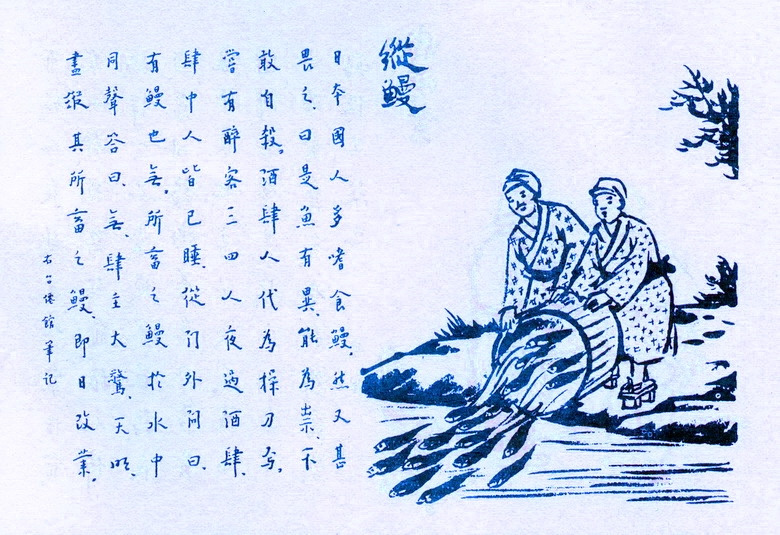 縱鰻
日本國人多嗜食鰻。然又甚
畏之、曰是魚有異、能為祟、不
敢自殺。酒肆人代為操刀焉。
嘗有醉客三四人夜過酒肆、
肆中人皆已睡、從門外問曰、
有鰻也無。所畜之鰻於水中
同聲答曰、無、肆主大驚、天明、
盡縱其所畜之鰻、即日改業。
右台僊館筆記